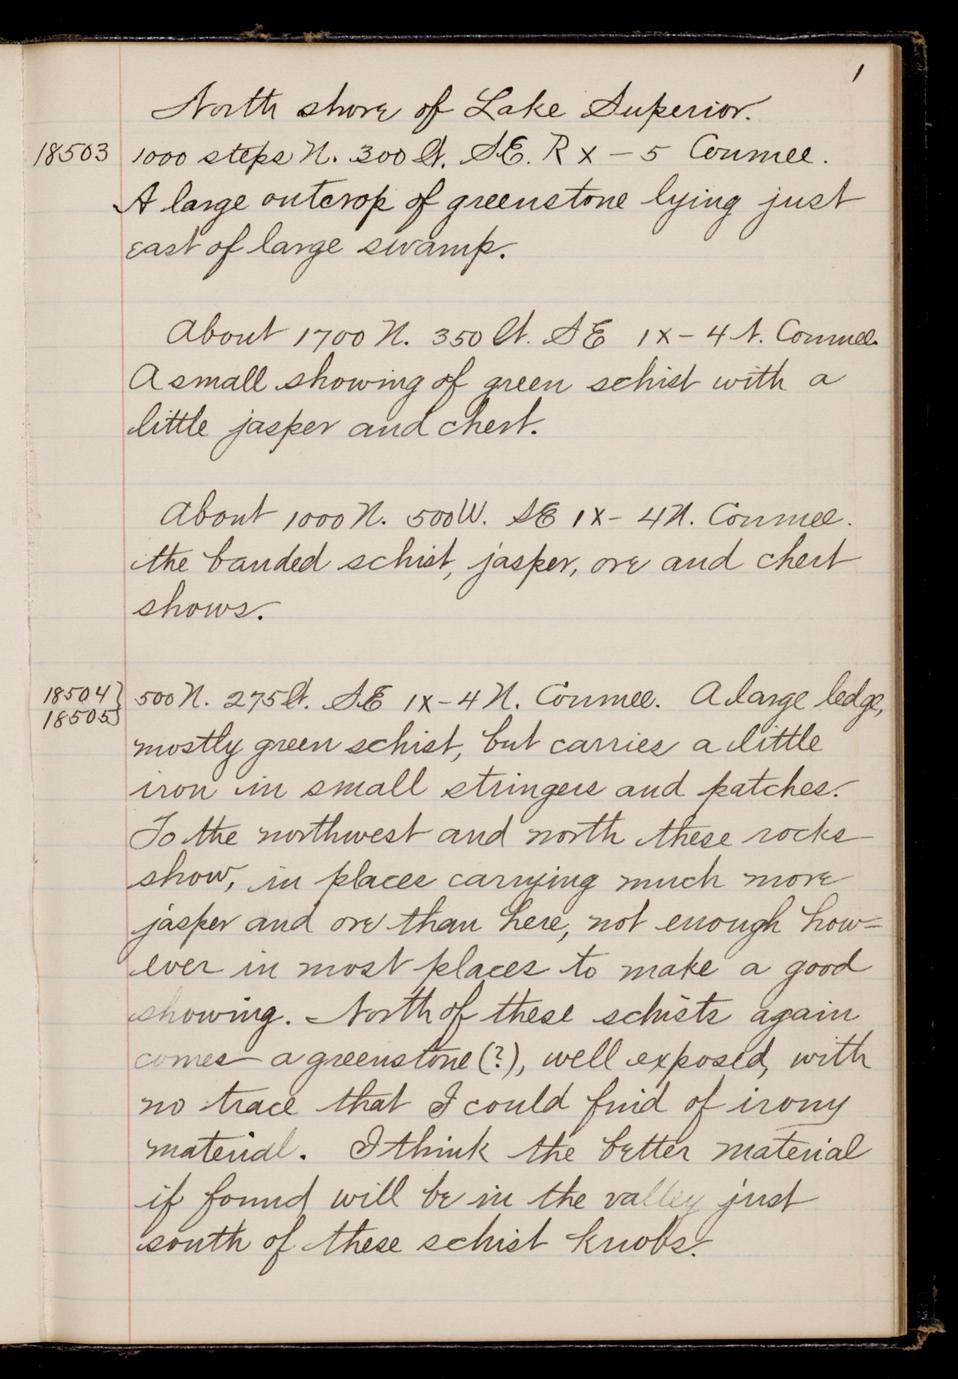 1
North shore of Lake Superior.
18503 1000 steps N. 300 W. SE. R X - 5 Conmee.
A large outcrop of greenstone lying just
east of large swamp.
About 1700 N. 350 W. SE 1X - 4 N. Conmee.
A small showing of green schist with a
little jasper and chert.
About 1000 N. 500 W. SE 1X - 4 N. Conmee.
the banded schist, jasper, ore and chert
shows.
18504} 500 N. 275 W. SE 1X - 4 N. Conmee. A large ledge,
18505}
mostly green schist, but carries a little
iron in small stringers and patches.
To the northwest and north these rocks
show, in places carrying much more
jasper and ore than here, not enough how=
ever in most places to make a good
showing. North of these schists again
comes a greenstone (?), well exposed, with
no trace that I could find of irony
material. I think the better material
if found will be in the valley just
south of these schist knobs.